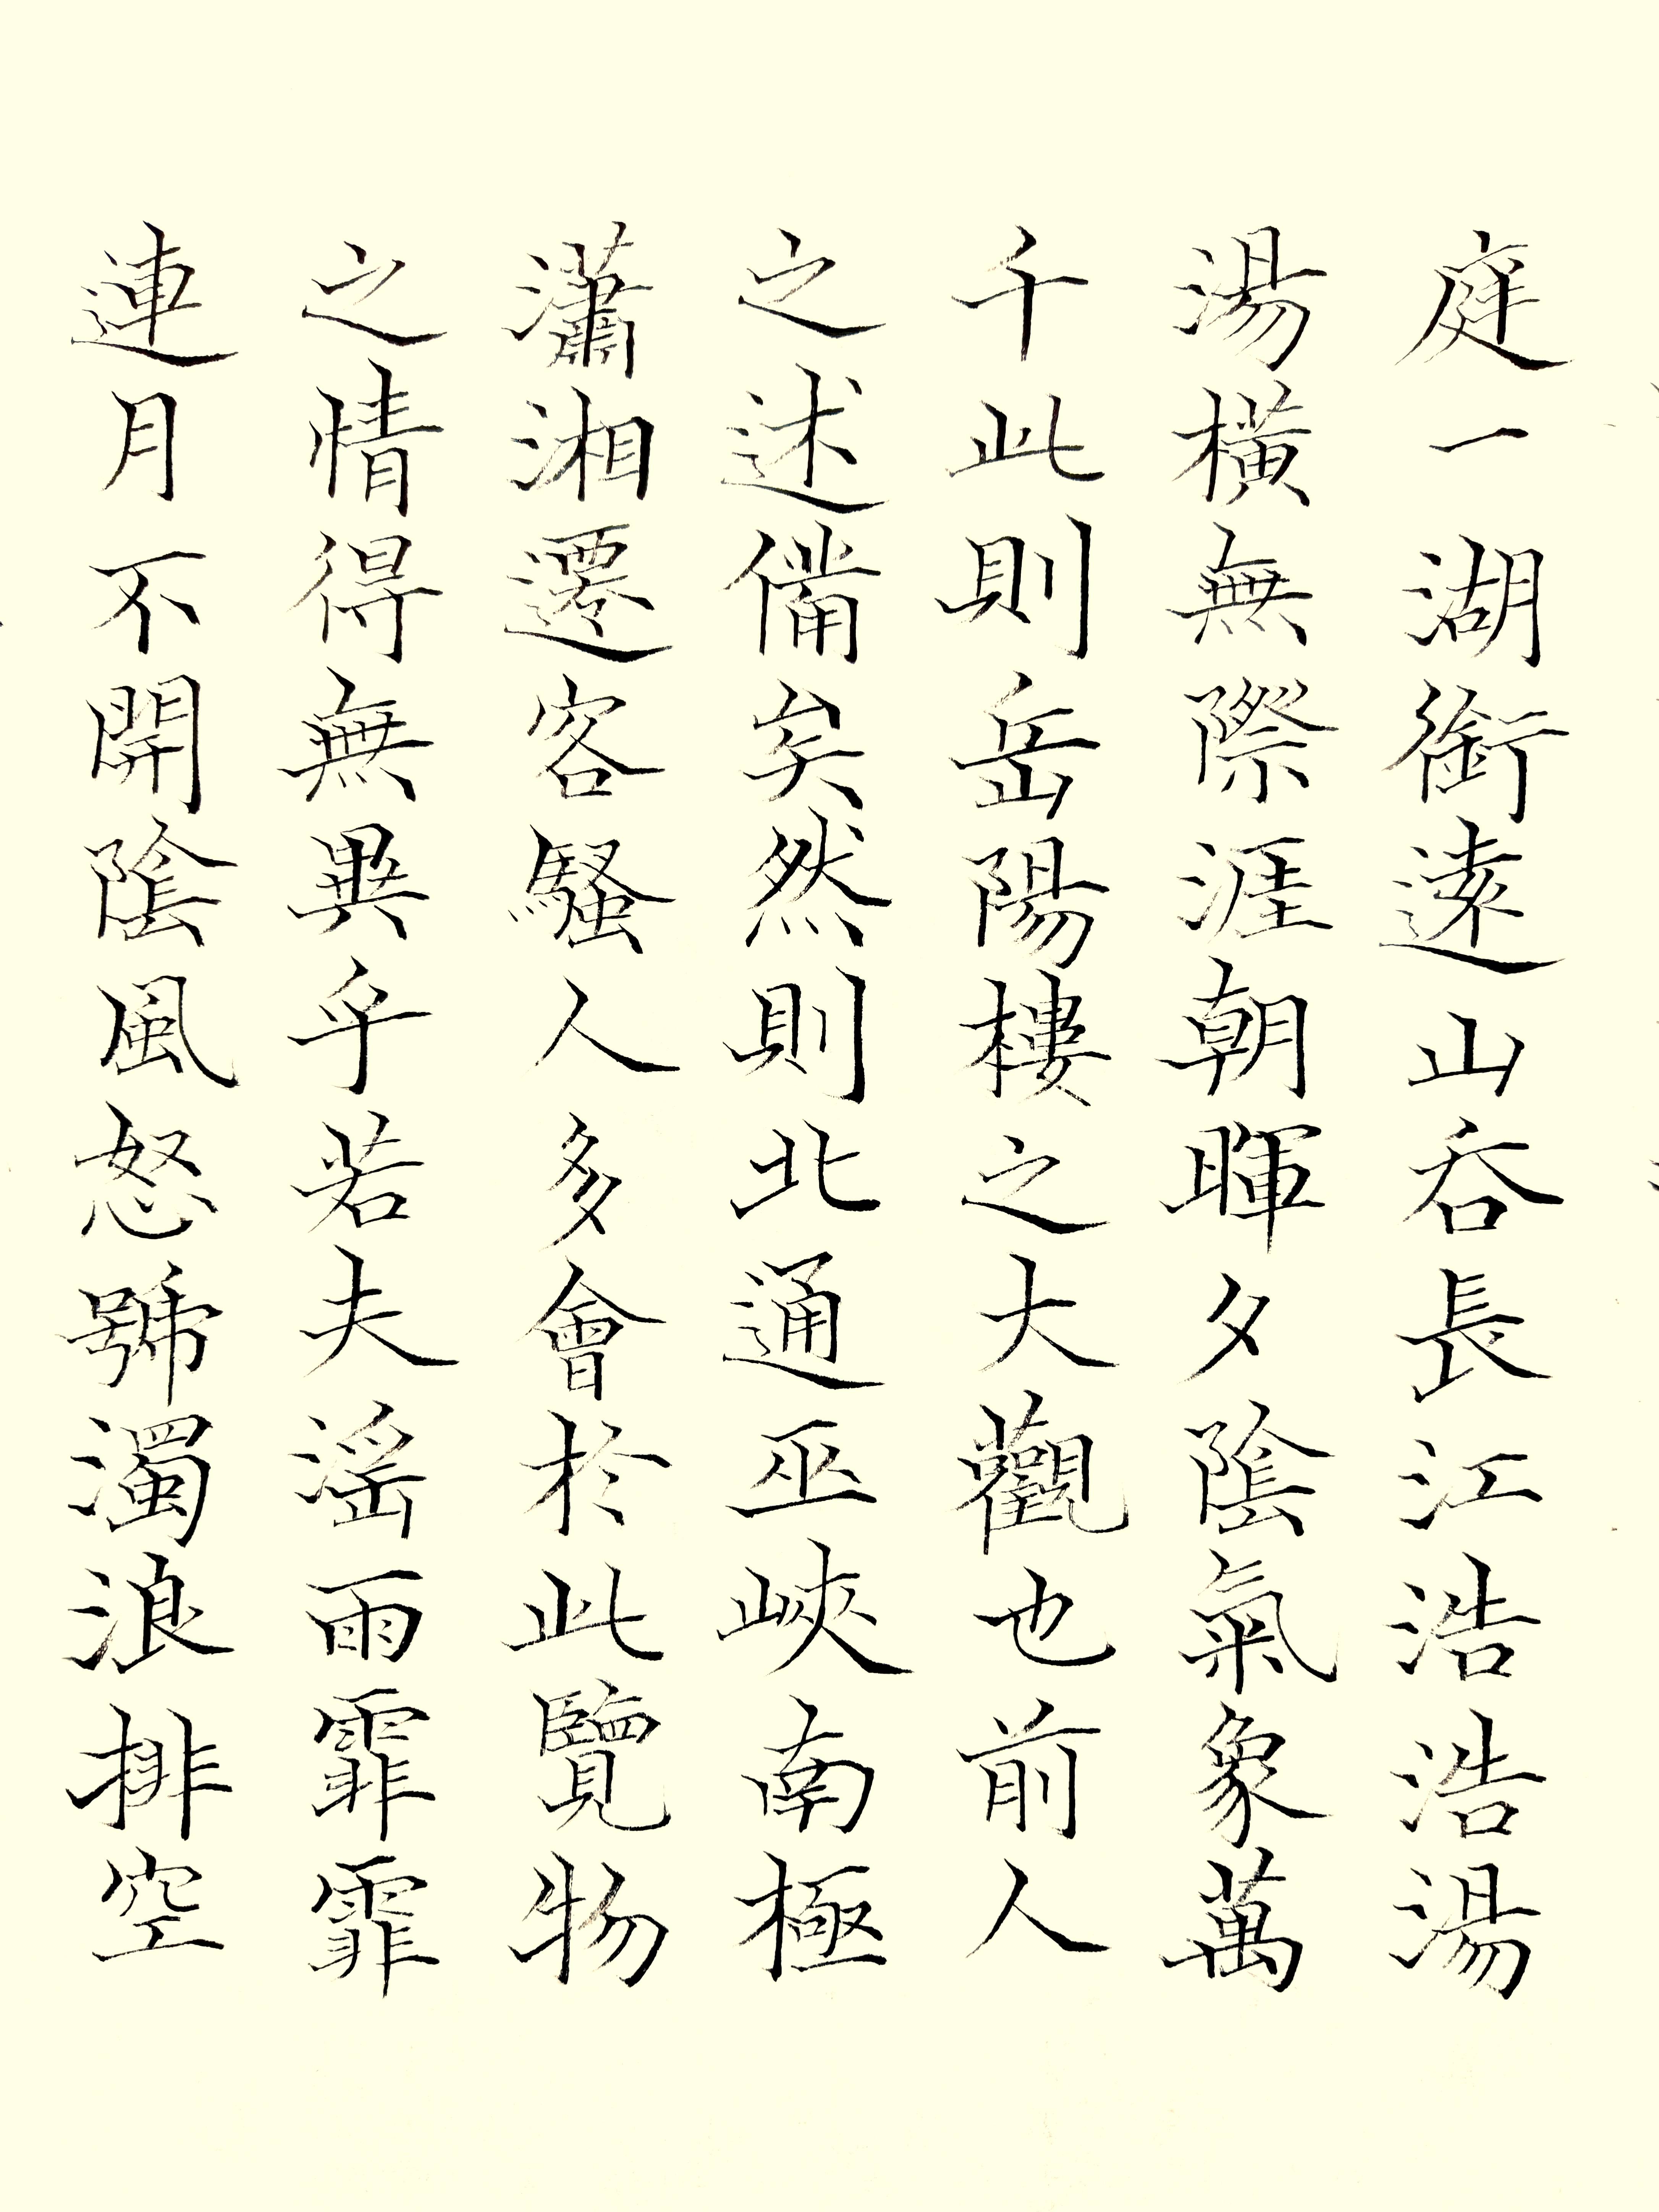 庭一湖銜遠山吞長江浩浩湯
湯橫無際涯朝暉夕陰氣象萬
千此則岳陽樓之大觀也前人
之述備矣然則北通巫峽南極
瀟湘遷客騷人多會於此覽物
之情得無異乎若夫淫雨霏霏
連月不開陰風怒號濁浪排空